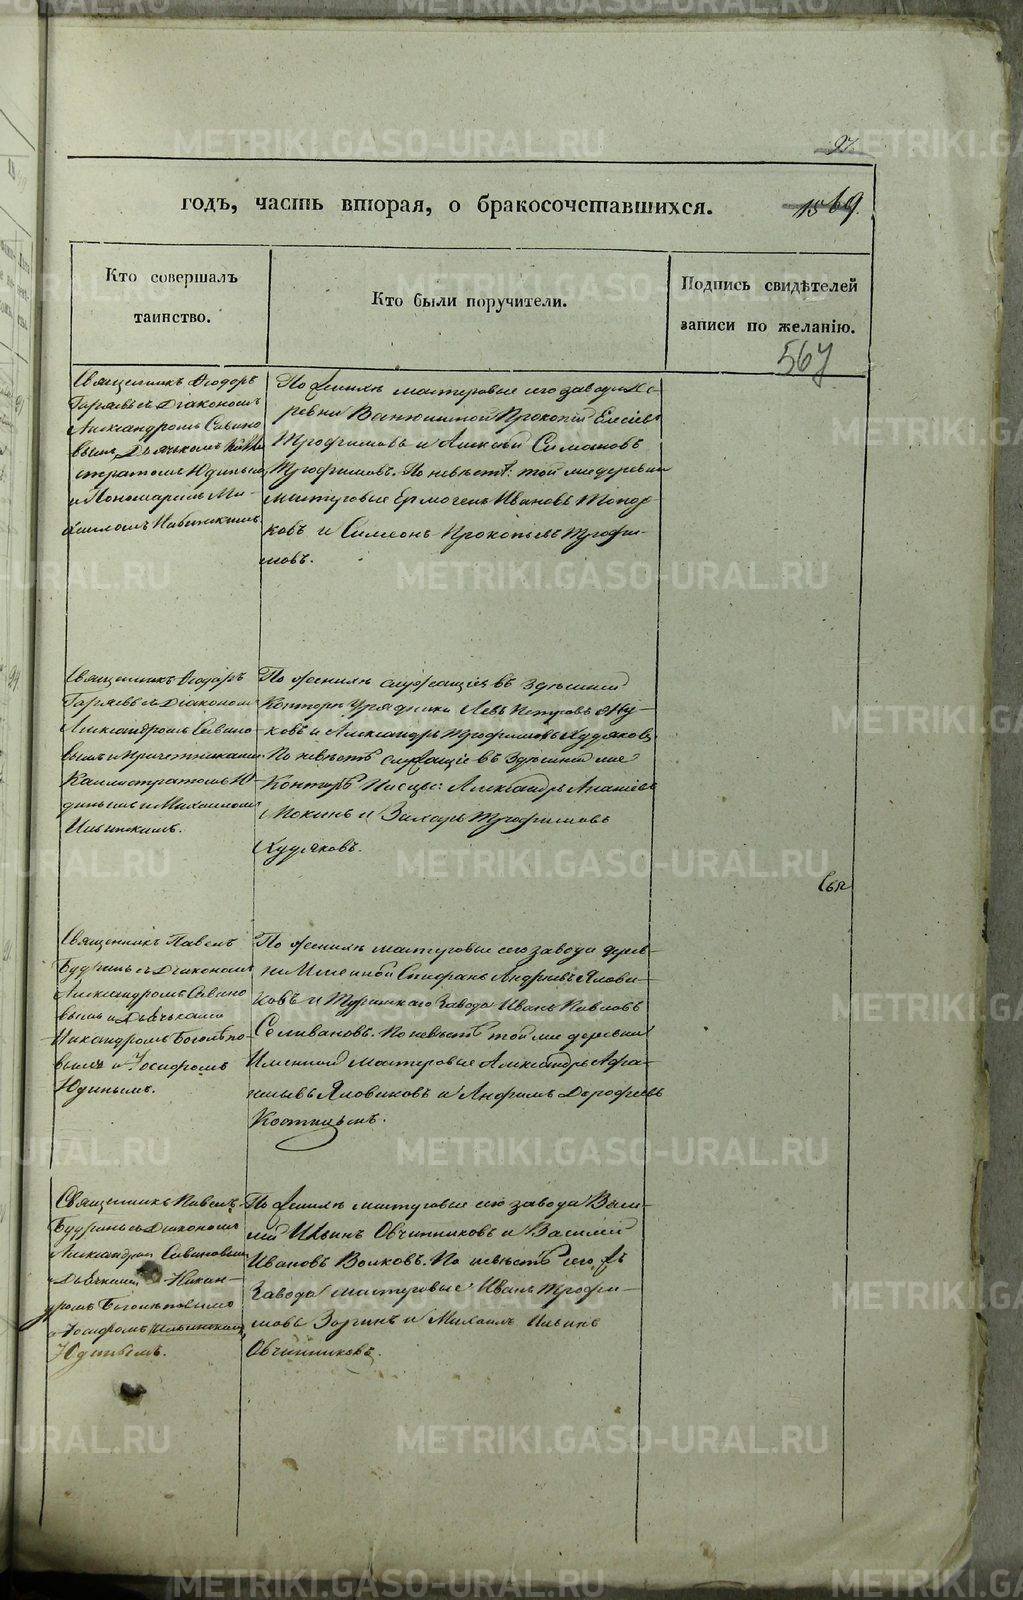 27.
годъ, часть вторая, о бракосочетавшихся.
1569.
Кто совершалъ
таинство.
Кто были поручители.
Подпись свидѣтелей
записи по желанію.
567
Священникъ Ѳеодоръ
Гаряевъ съ Діакономъ
Александромъ Савино
вымъ, Дьячкомъ Калли
стратомъ Юдинымъ
и Пономаремъ Ми-
хаиломъ Ильинскимъ.
По женихѣ мастеровые сего завода Де
ревни Прокопій Елисѣевъ
Трофимовъ и Алексѣй Симановъ
Трофимовъ. По невѣстѣ: той же деревни
мастеровые Ермогенъ Ивановъ Топор
ковъ и Симеонъ Прокопьевъ Трофи-
мовъ.
Священникъ Ѳеодоръ
Гаряевъ съ Діакономъ
Александромъ Савино
вымъ и Причетниками
Каллистратомъ Ю
динымъ и Михаиломъ
Ильинскимъ.
По женихѣ служащіе въ здѣшней
Конторѣ Урядники Левъ Петровъ
ковъ и Александръ Трофимовъ Худяковъ
По невѣстѣ служащіе въ здѣшней же
Конторѣ Писцы: Александръ Ананьевъ
Мокинъ и Захаръ Трофимовъ
Худяковъ.
Священникъ Павелъ
Будринъ съ Діакономъ
Александромъ Савино
вымъ и Дьячками
Никандромъ Боголѣпо
вымъ и Іосифомъ
Юдинымъ.
По женихѣ мастеровые сего завода дерев-
ни Именной Спифанъ Андреевъ Ялови-
ковъ и Туринскаго Завода Иванъ Павловъ
Селивановъ. По невѣстѣ той же деревни
Именной мастеровые Александръ Афа-
насьевъ Яловиковъ и Анфимъ Дорофеевъ
Костицынъ.
Священникъ Павелъ
Будринъ съ Діакономъ
Александромъ Савиновымъ
Дьячками Никан-
дромъ Боголѣповымъ
и Іосифомъ Ильинскимъ
Юдинымъ.
По женихѣ мастеровые сего завода Васи-
лій Ильинъ Овчинниковъ и Василій
Ивановъ Волковъ. По невѣстѣ сего жъ
Завода мастеровые Иванъ Трофи-
мовъ Зоринъ и Михаилъ Ильинъ
Овчинниковъ.
METRIKI.GASO-URAL.RU